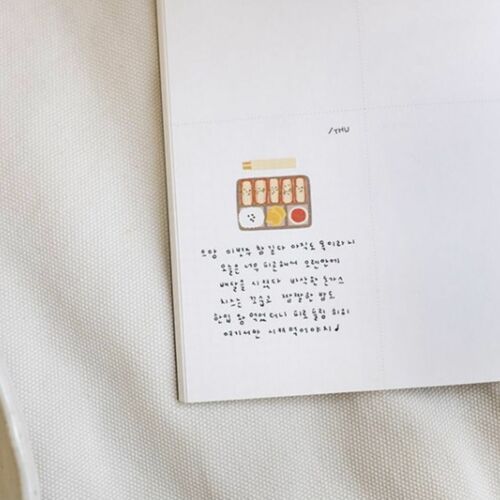 /THU
으앙 이번주 참 길다 아직도 목이라니
오늘은 너무 피곤해서 오랜만에
배달을 시켰다 바삭한 돈가스
치즈는 꼬숩고 짭짤한 밥도
한입 왕 먹었더니 피로 풀링 히히
여기서만 시켜먹어야지♪